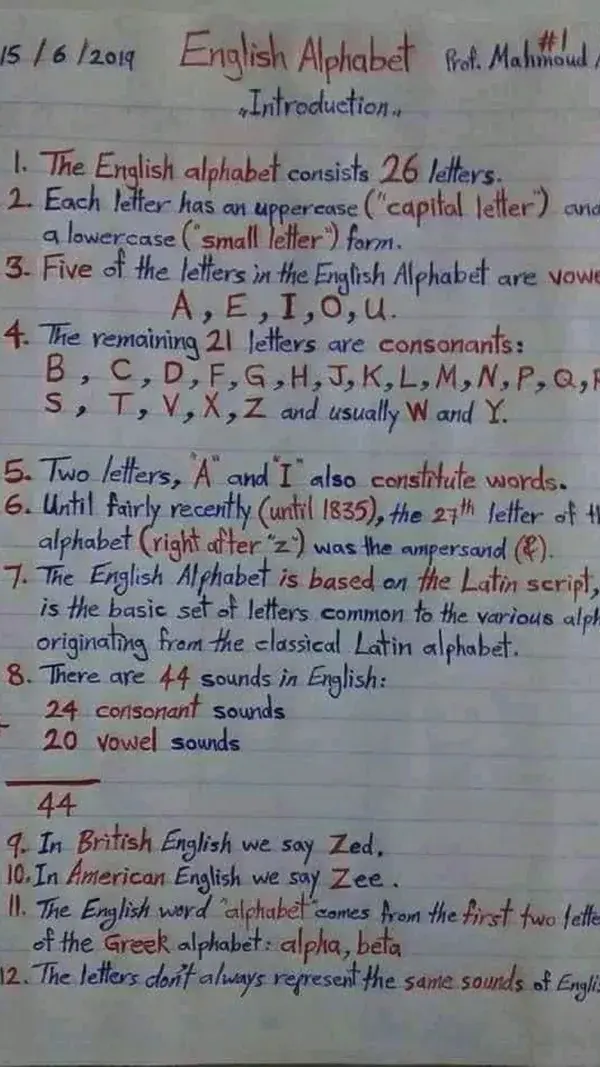 15/6/2019 English Alphabet #1 Prof. Mahmoud
"Introduction"
1. The English alphabet consists 26 letters.
2. Each letter has an uppercase ("capital letter") and
a lowercase ("small letter") form.
3. Five of the letters in the English Alphabet are vowe
A, E, I, O, U.
4. The remaining 21 letters are consonants:
B, C, D, F, G, H, J, K, L, M, N, P, Q, R
S, T, V, X, Z and usually W and Y.
5. Two letters, "A" and "I" also constitute words.
6. Until fairly recently (until 1835), the 27th letter of th
alphabet (right after "z") was the ampersand (&).
7. The English Alphabet is based on the Latin script,
is the basic set of letters common to the various alph
originating from the classical Latin alphabet.
8. There are 44 sounds in English:
24 consonant sounds
20 vowel sounds
44
9. In British English we say Zed.
10. In American English we say Zee.
11. The English word "alphabet" comes from the first two lette
of the Greek alphabet: alpha, beta
12. The letters don't always represent the same sounds of Engli